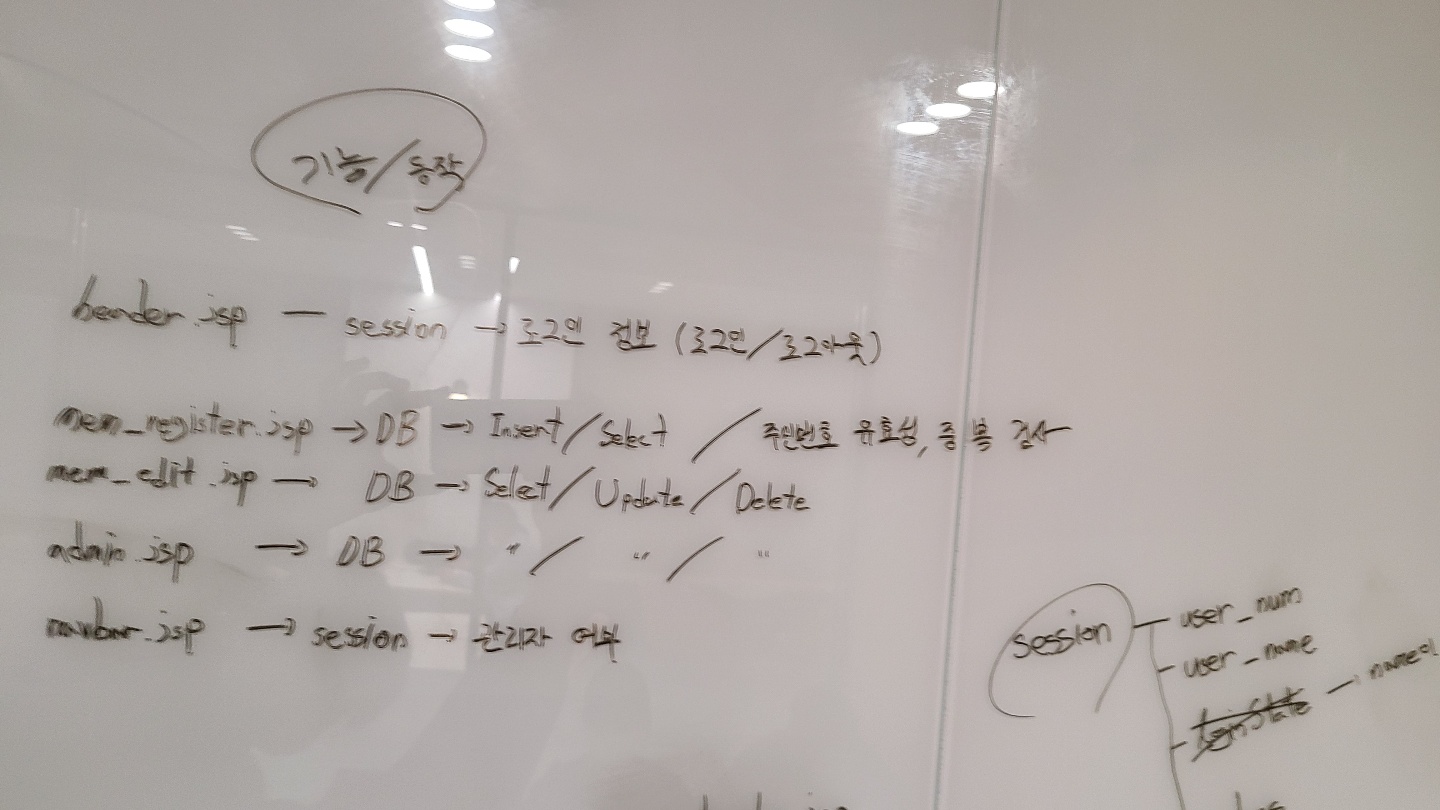 기능/동작
header.jsp — session → 로그인 정보 (로그인/로그아웃)
mem_register.jsp → DB → Insert/Select / 주민번호 유효성, 중복 검사
mem_edit.jsp → DB → Select/Update/Delete
admin.jsp → DB → " / " / "
navbar.jsp → session → 관리자 여부
session — user_num
user_name
loginState → name이